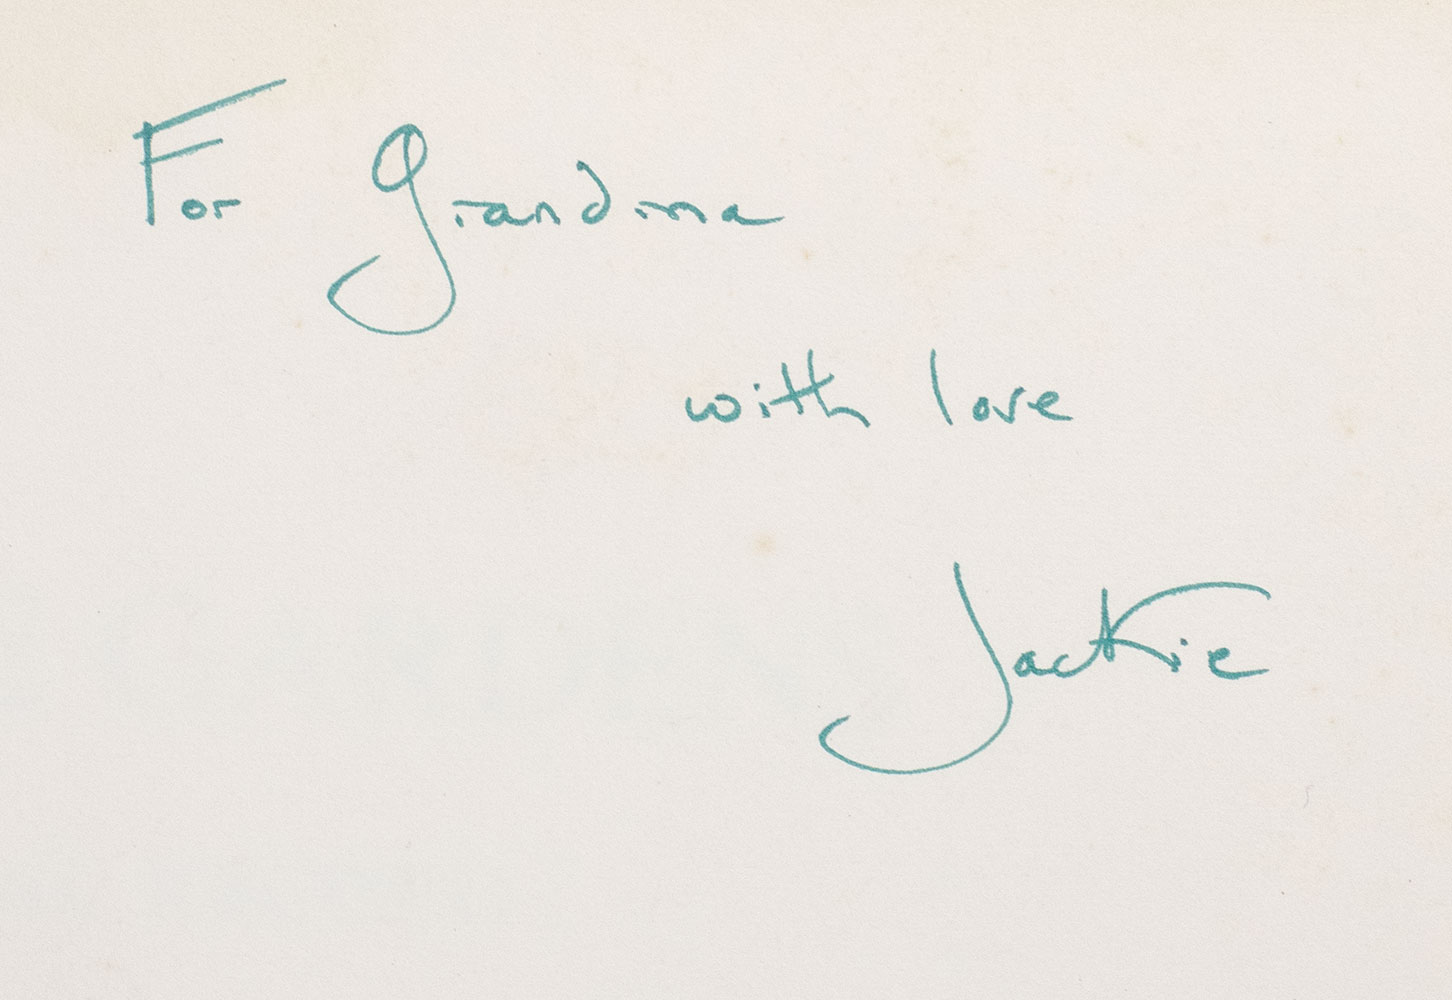 For Grandma
with love
Jackie